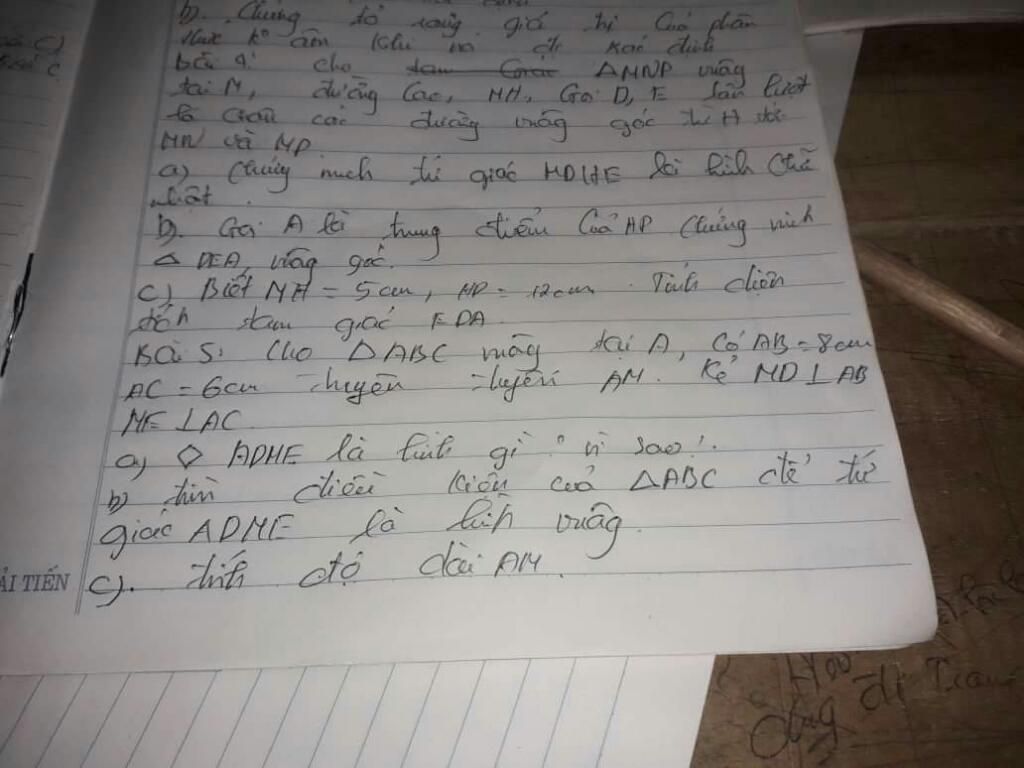 b). Chứng tỏ rằng giá trị của phân
thức k° âm khi nó đc xác định
bài 4: cho tam giác ΔMNP vuông
tại M, đường cao, MH, Gọi D, E lần lượt
là chân các đường vuông góc từ H tới
MN và MP
a) Chứng minh tứ giác MDHE là hình chữ
nhật.
b). Gọi A là trung điểm của HP chứng minh
Δ DEA vuông góc.
c) Biết MH = 5cm, HP = 12cm. Tính diện
tích tam giác EDA
Bài 5: Cho ΔABC vuông tại A, có AB = 8cm
AC = 6cm tuyến AM. Kẻ MD⊥AB
ME⊥AC
a) ◇ ADME là hình gì? vì sao?
b) tìm điều kiện của ΔABC để tứ
giác ADME là hình vuông.
ẢI TIẾN
c). tính độ dài AM.
đi